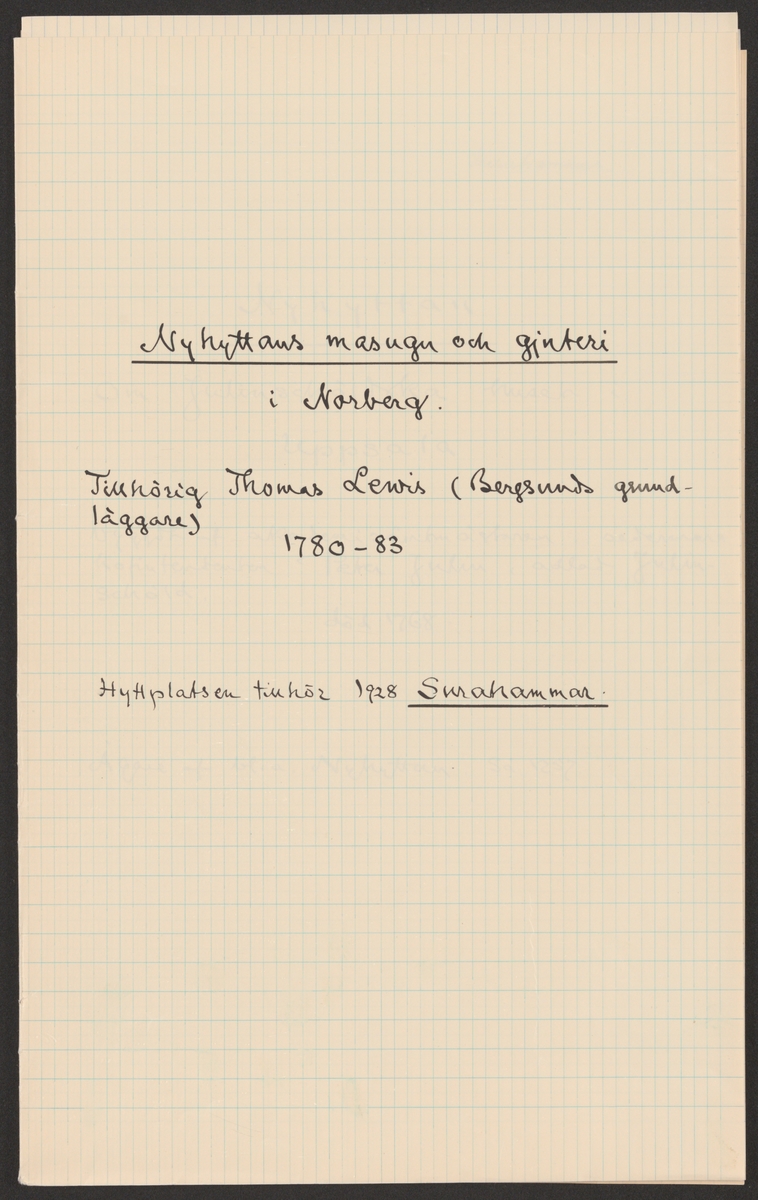 Nyhyttans masugn och gjuteri
i Norberg.
Tillhörig Thomas Lewis (Bergsunds grund-
läggare)
1780-83
Hyttplatsen tillhör 1928 Surahammar.